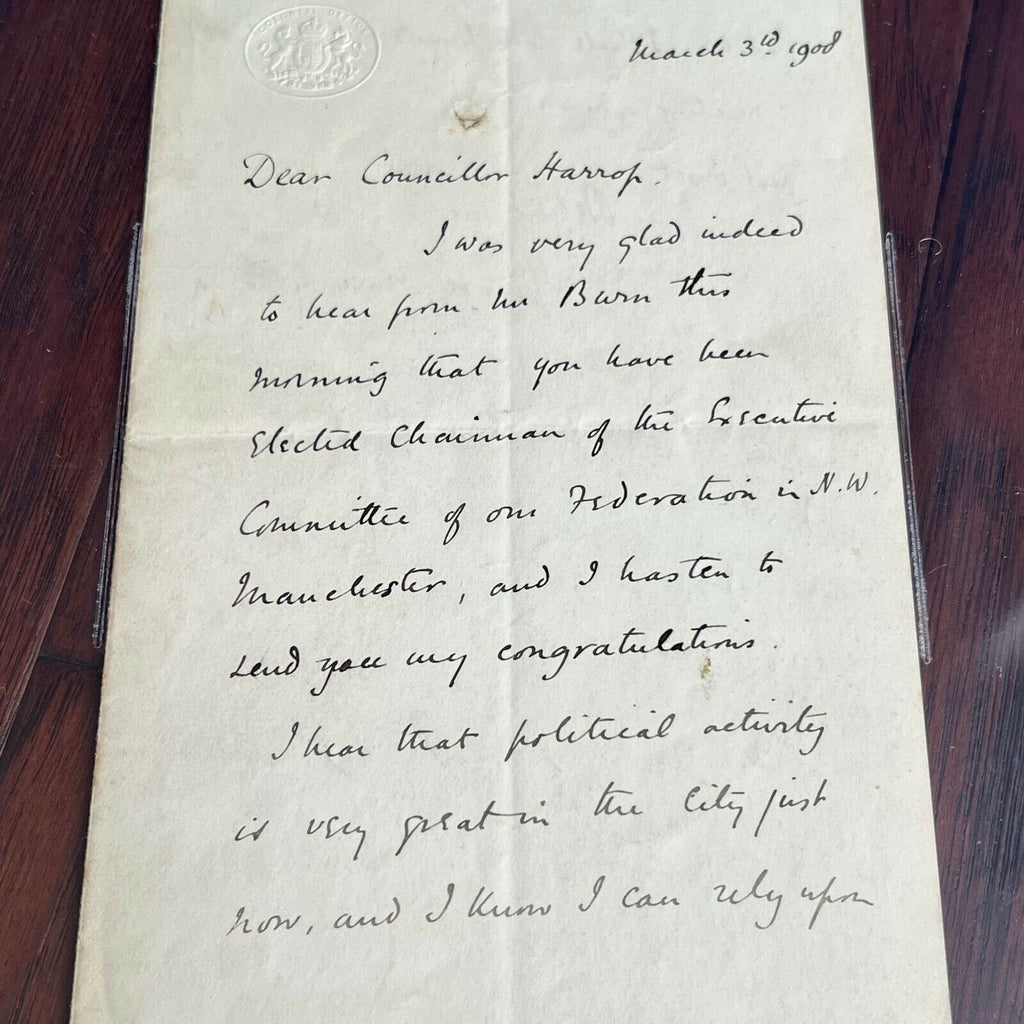 COLONIAL OFFICE
March 3rd 1908
Dear Councillor Harrop.
I was very glad indeed
to hear from Mr Burn this
morning that you have been
elected Chairman of the Executive
Committee of our Federation in N.W.
Manchester, and I hasten to
send you my congratulations.
I hear that political activity
is very great in the City just
now, and I know I can rely upon